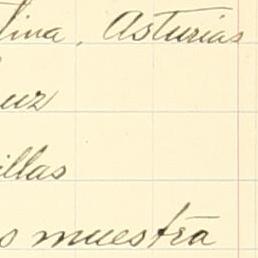 tina, Asturias
uz
illas
s muestra